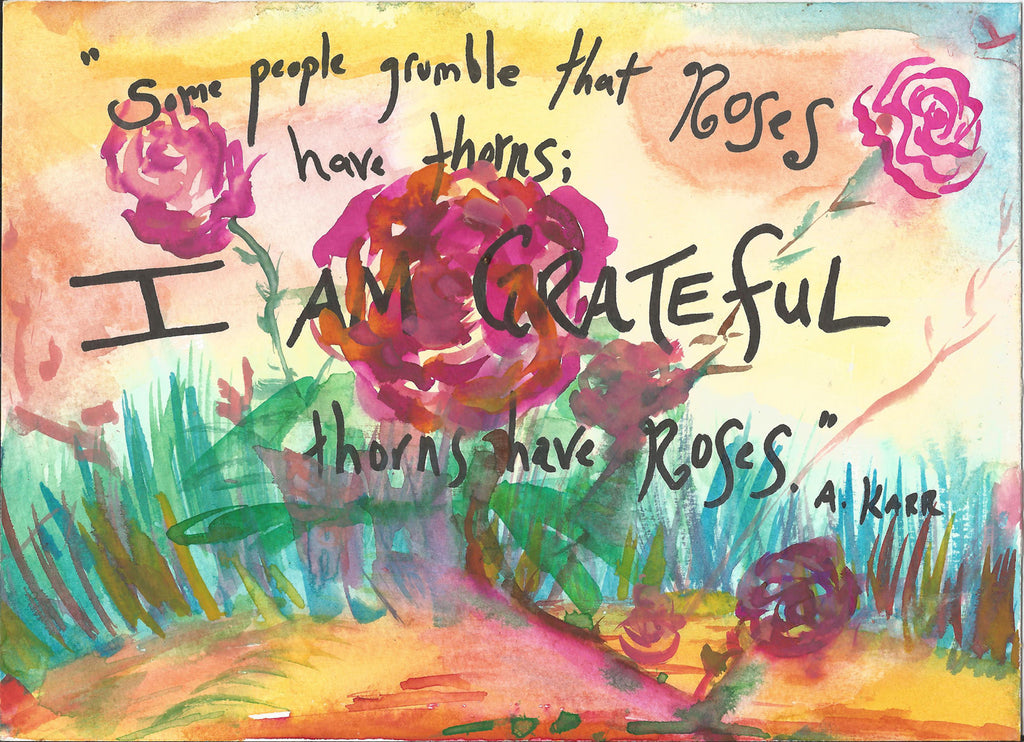 "Some people grumble that Roses
have thorns;
I AM GRATEfuL
thorns have Roses."
A. KARR